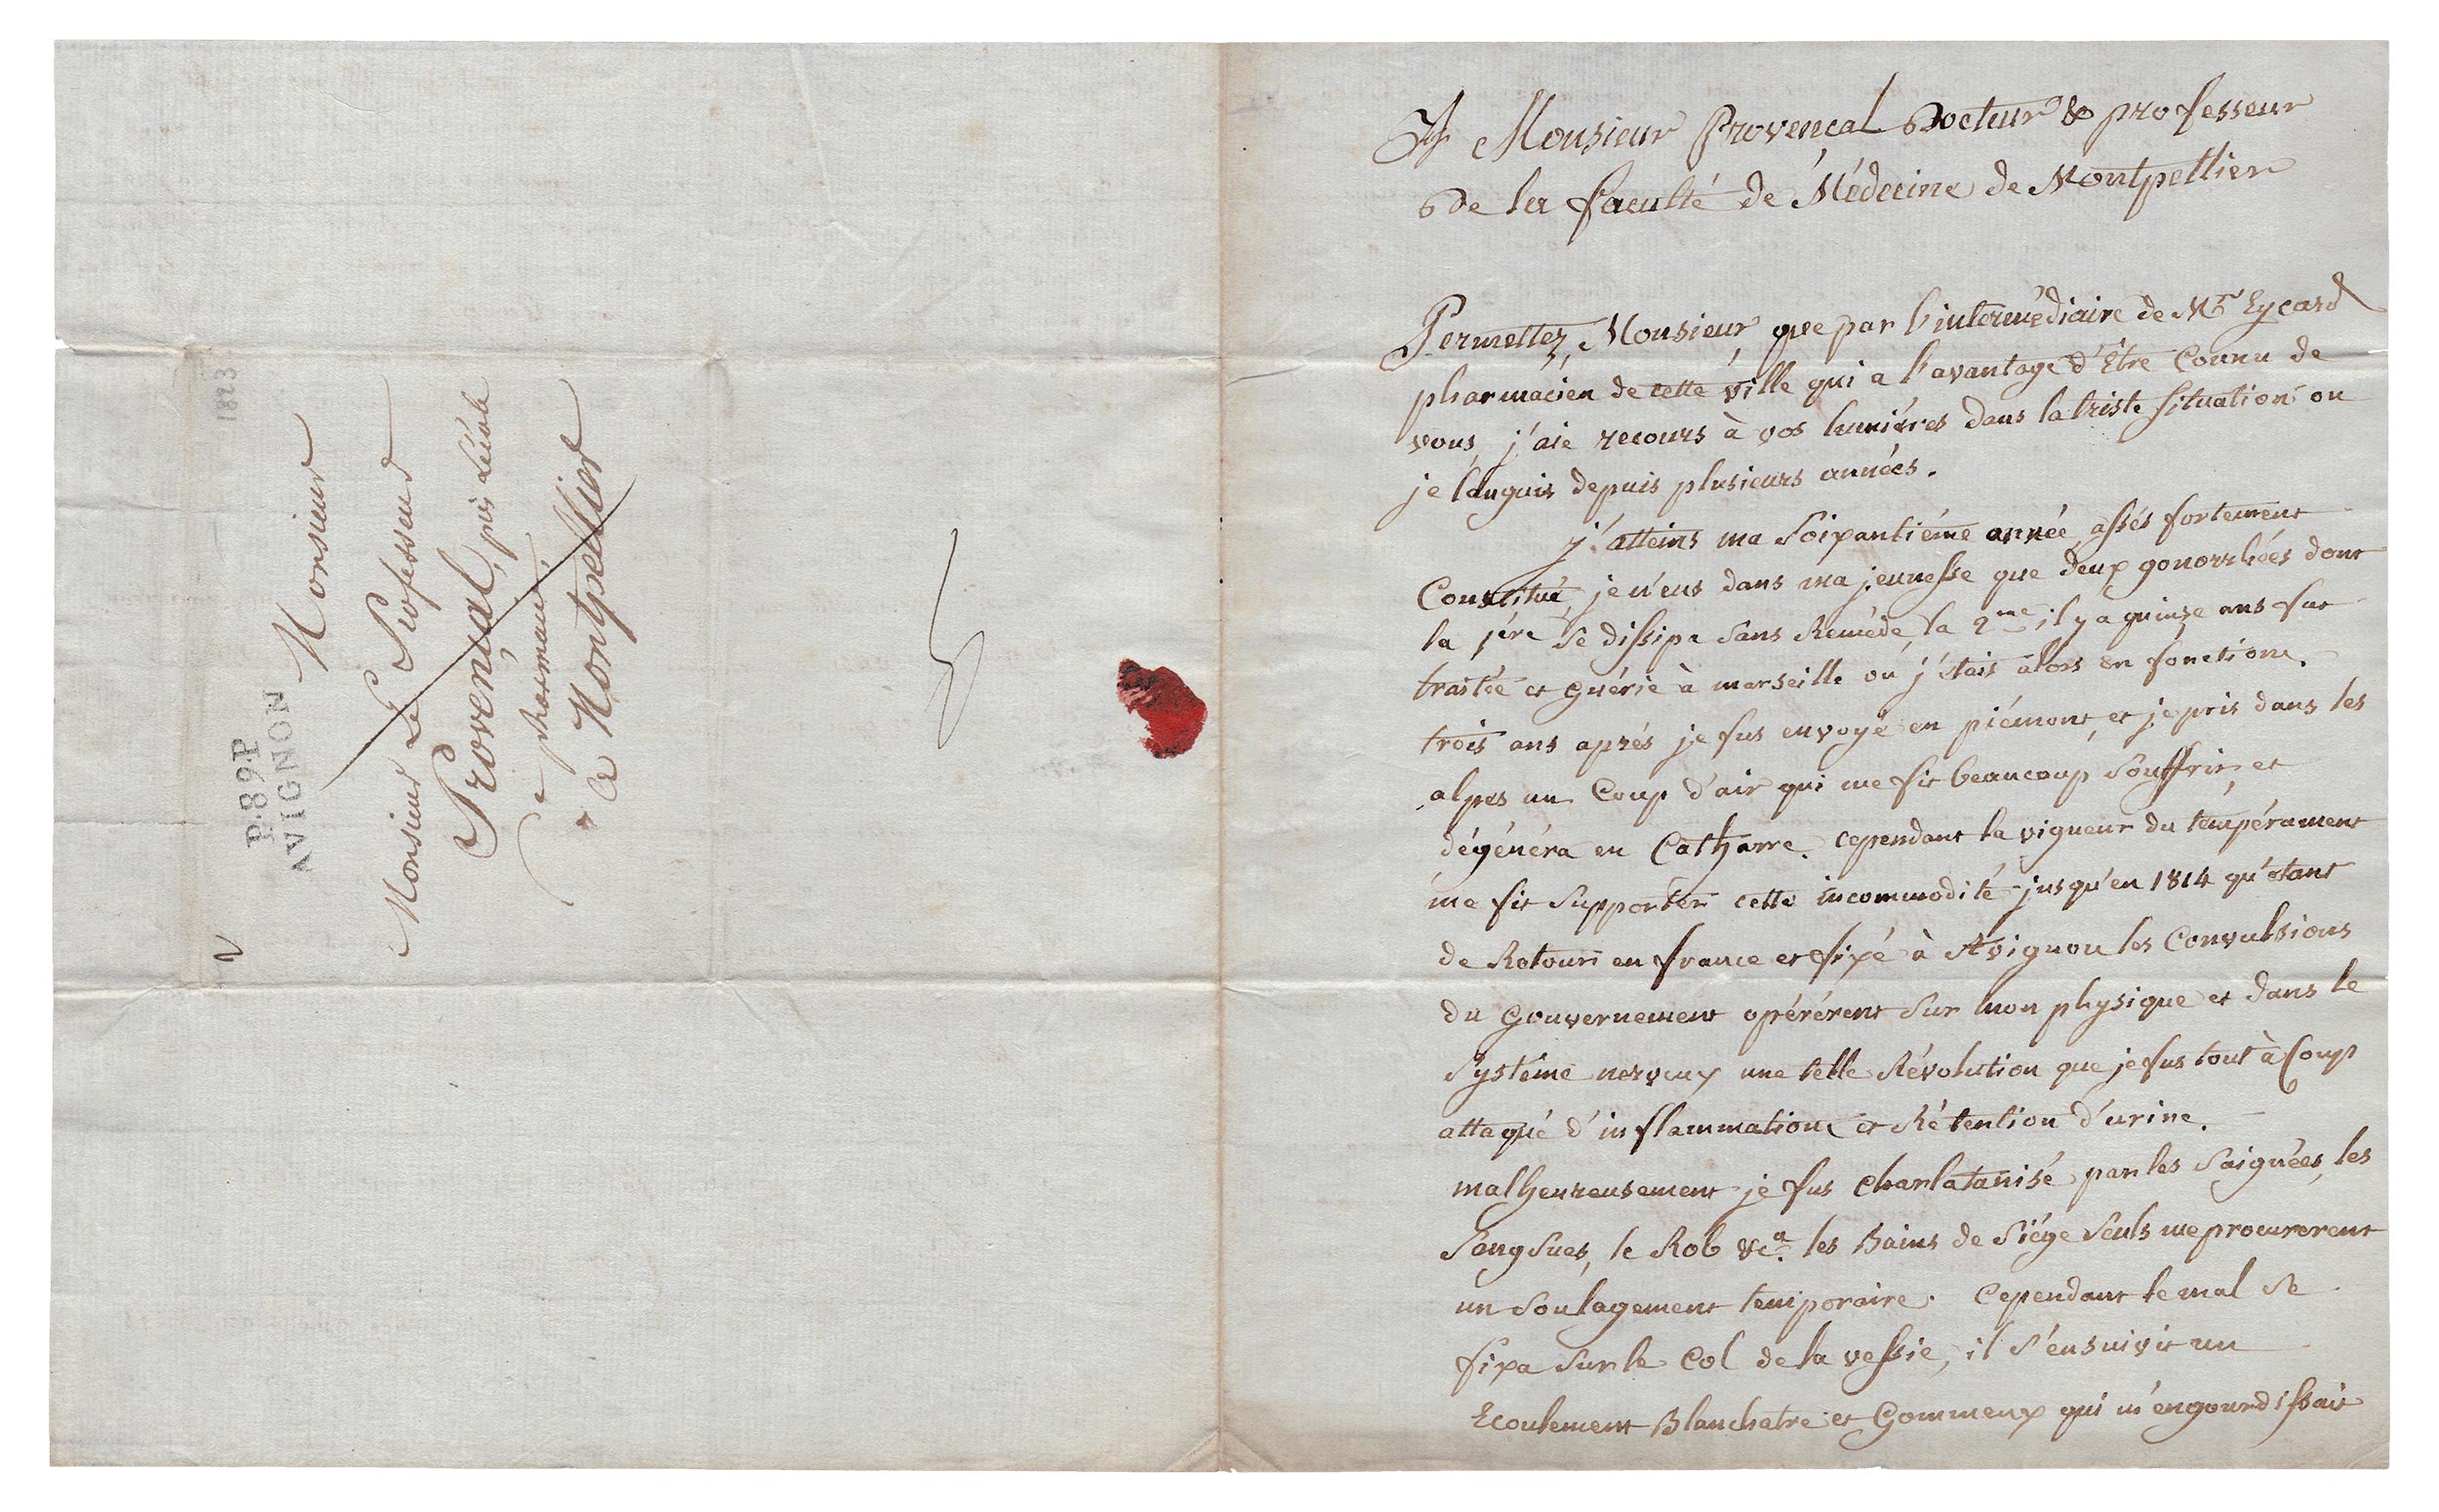 1823
P.89.P
AVIGNON
Monsieur
Monsieur Le Professeur
Provençal, près L'école
De pharmacie,
à Montpellier
2
5
A Monsieur Provencal Docteur & professeur
De la faculté de Médecine de Montpellier
Permettez, Monsieur, que par l'intermédiaire de Mr Eycard
pharmacien de cette ville qui a l'avantage d'Etre Connu de
vous, j'aie recours à vos lumiéres dans la triste situation ou
je languis depuis plusieurs années.
j'atteins ma Soixantiéme année, assés fortement
Constitué, je n'eus dans ma jeunesse que deux gonorrhées dont
la 1ére Se dissipa Sans Reméde, la 2me il y a quinze ans fut
traitée et guérie à marseille ou j'étais alors en fonctions.
trois ans aprés je fus envoyé en piémont, et je pris dans les
alpes un Coup d'air qui me fit beaucoup Souffrir, et
dégénéra en Catharre. cependant la vigueur du tempérament
me fit Supporter cette incommodité jusqu'en 1814 qu'étant
de Retour en france et fixé à Avignon les Convulsions
du Gouvernement opérérent Sur mon physique et dans le
Systéme nerveux une telle Révolution que je fus tout à Coup
attaqué d'inflammation et Rétention d'urine.
malheureusement je fus charlatanisé par les Saignées, les
Sangsues, le Rob &ca. les Bains de Siége Seuls me procurerent
un Soulagement temporaire. Cependant le mal Se
fixa Sur le Col de la vessie, il S'ensuivit un
Ecoulement Blanchatre et Gommeux qui m'engourdissait